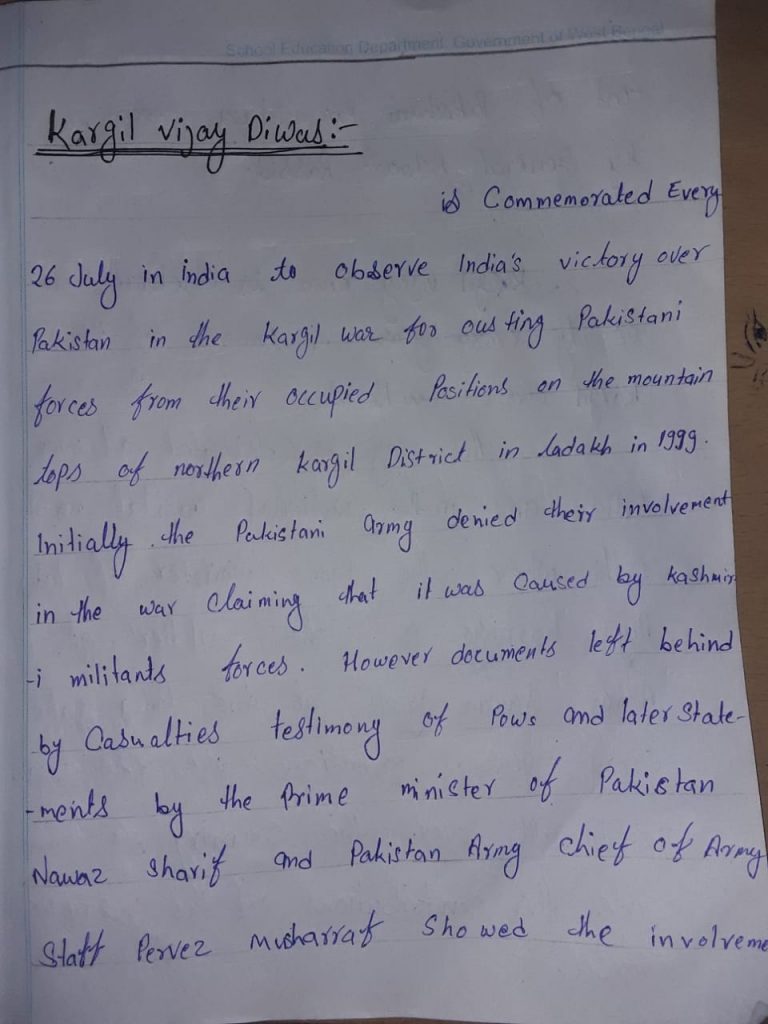 School Education Department, Government of West Bengal
Kargil Vijay Diwas:-
is Commemorated Every
26 July in india to observe India's victory over
Pakistan in the Kargil war for ousting Pakistani
forces from their occupied Positions on the mountain
tops of northern kargil District in ladakh in 1999.
Initially the Pakistani army denied their involvement
in the war Claiming that it was Caused by kashmir
-i militants forces. However documents left behind
by Casualties testimony of Pows and later State-
-ments by the Prime minister of Pakistan
Nawaz Sharif and Pakistan Army Chief of Army
Staff Pervez Musharraf Showed the involveme